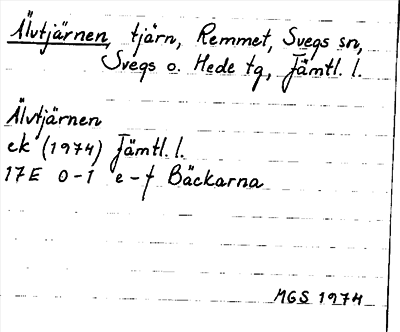 Älvtjärnen, tjärn, Remmet, Svegs sn,
Svegs o. Hede tg, Jämtl. l.
Älvtjärnen
ek (1974) Jämtl. l.
17E 0-1 e-f Bäckarna
MGS 1974